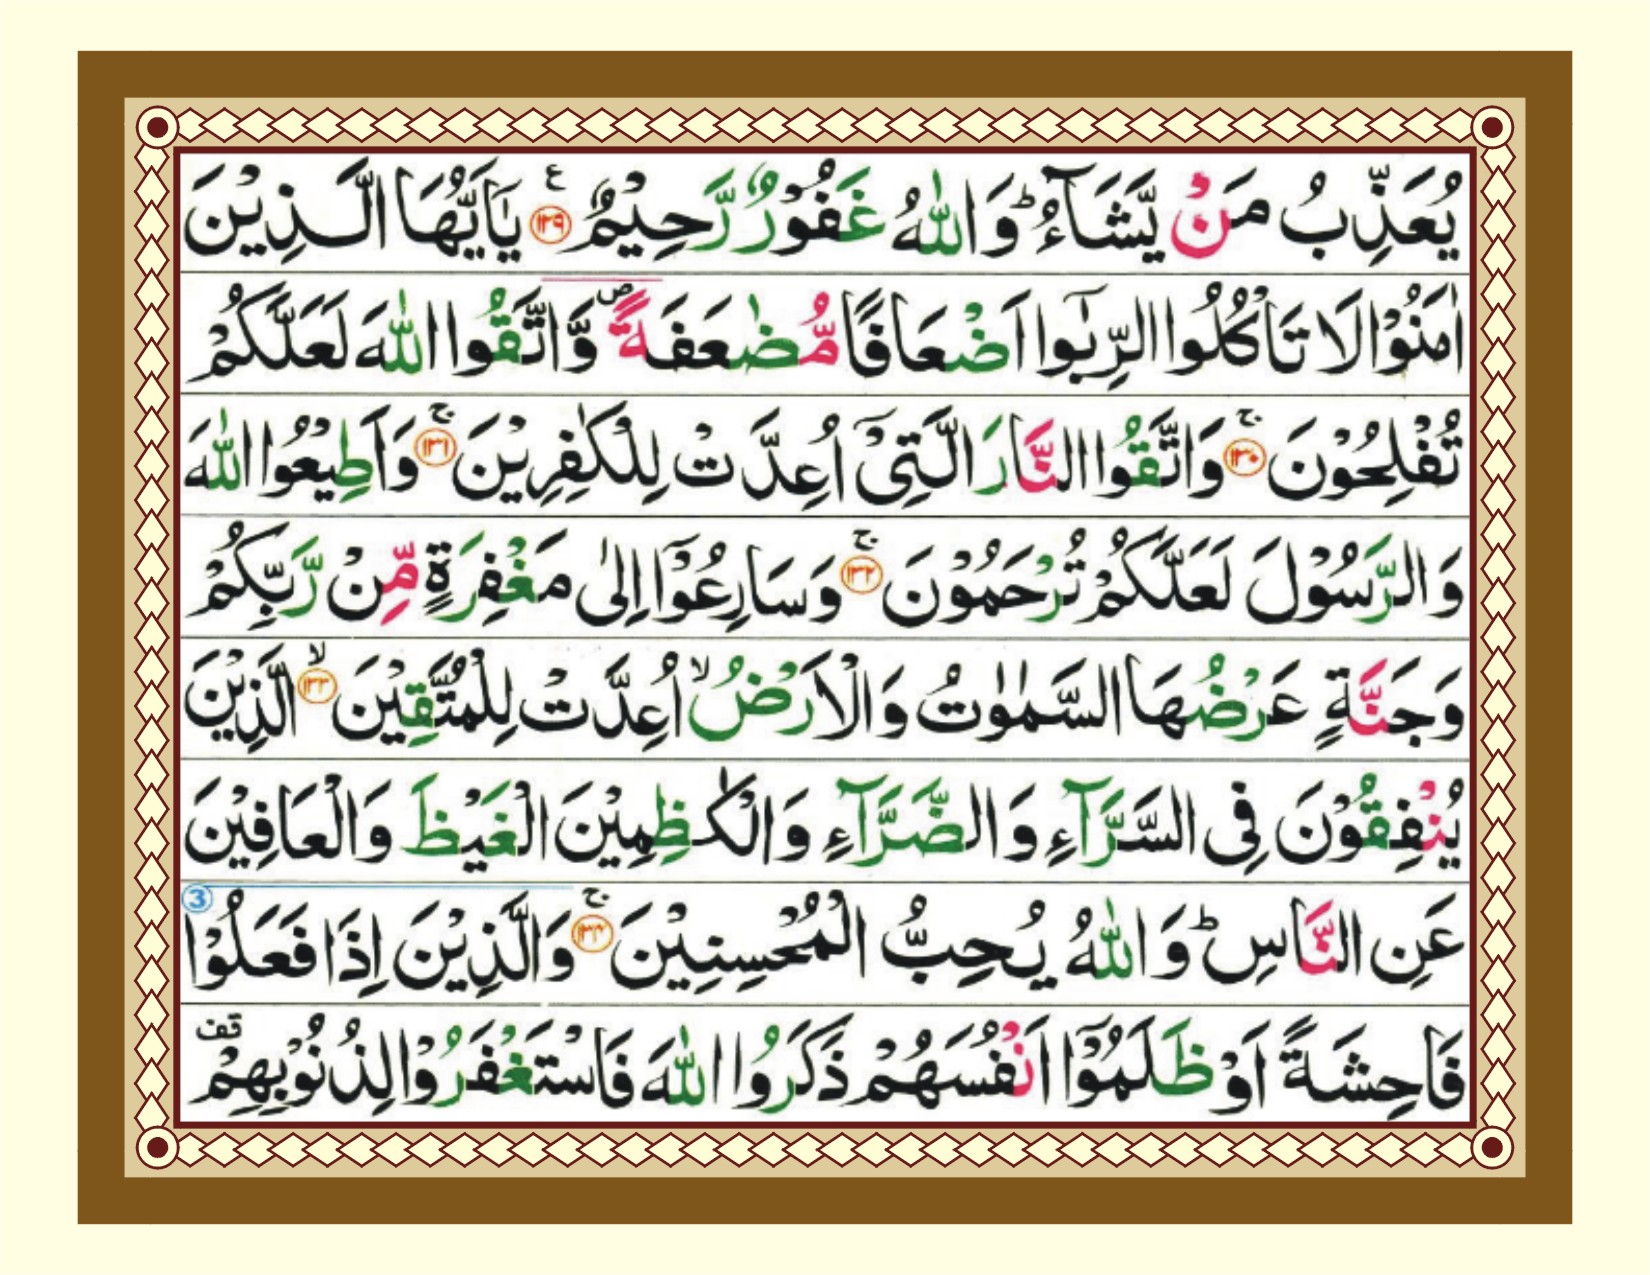 يُعَذِّبُ مَنْ يَّشَآءُ ؕ وَاللّٰهُ غَفُوْرٌ رَّحِيْمٌ ۧ ﴿۱۲۹﴾ يٰۤاَيُّهَا الَّذِيْنَ
اٰمَنُوْا لَا تَاْكُلُوا الرِّبٰٓوا اَضْعَافًا مُّضٰعَفَةً ۪ وَّاتَّقُوا اللّٰهَ لَعَلَّكُمْ
تُفْلِحُوْنَ ۚ ﴿۱۳۰﴾ وَاتَّقُوا النَّارَ الَّتِيْۤ اُعِدَّتْ لِلْكٰفِرِيْنَ ۚ ﴿۱۳۱﴾ وَاَطِيْعُوا اللّٰهَ
وَالرَّسُوْلَ لَعَلَّكُمْ تُرْحَمُوْنَ ۚ ﴿۱۳۲﴾ وَسَارِعُوْۤا اِلٰى مَغْفِرَةٍ مِّنْ رَّبِّكُمْ
وَجَنَّةٍ عَرْضُهَا السَّمٰوٰتُ وَالْاَرْضُ ۙ اُعِدَّتْ لِلْمُتَّقِيْنَ ۙ ﴿۱۳۳﴾ الَّذِيْنَ
يُنْفِقُوْنَ فِي السَّرَّآءِ وَالضَّرَّآءِ وَالْكٰظِمِيْنَ الْغَيْظَ وَالْعَافِيْنَ
عَنِ النَّاسِ ؕ وَاللّٰهُ يُحِبُّ الْمُحْسِنِيْنَ ۚ ﴿۱۳۴﴾ وَالَّذِيْنَ اِذَا فَعَلُوْا 3
فَاحِشَةً اَوْ ظَلَمُوْۤا اَنْفُسَهُمْ ذَكَرُوا اللّٰهَ فَاسْتَغْفَرُوْا لِذُنُوْبِهِمْ قف